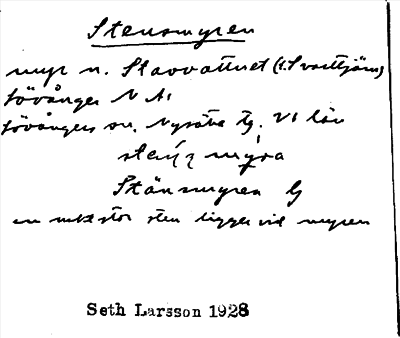 Stensmyren
myr n. Stavvattnet (i. Svarttjärn)
Lövånger N A1
Lövångers sn. Nysätra tg. Vb län
myra
Stänmyren G
en mkt stor sten ligger vid myren
Seth Larsson 1928